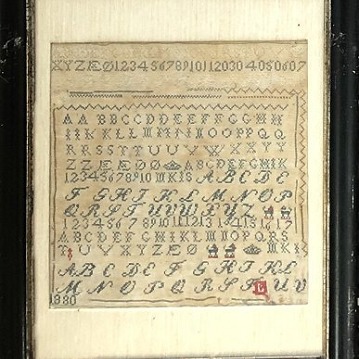 XYZÆØ0123456789101120304050607
AABBCCDDEEFFGGHH
IIKKLLMMNNOOPPQQ
RRSSTTUUVVXXYY
ZZÆÆØØABCDEFGHIK
12345678910MKISABCDE
FGHIKLMNOP
QRSTUVWXYZ
1234567891011121314151617
ABCDEFGHIKLMNOPQRS
TUVXYZÆØMKI
ABCDEFGHIKL
MNOPQRSTUV
1880